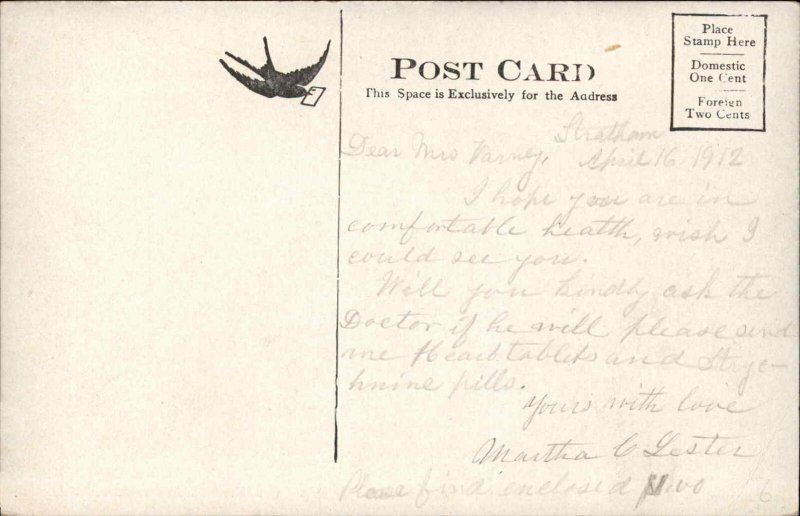 POST CARD
This Space is Exclusively for the Address
Place
Stamp Here
Domestic
One Cent
Foreign
Two Cents
Stratham
April 16 1912
Dear Mrs Varney,
I hope you are in
comfortable health, wish I
could see you.
Will you kindly ask the
Doctor if he will please send
me Heart tablets and Stryc-
hnine pills.
Yours with love
Martha C Lester
Please find enclosed